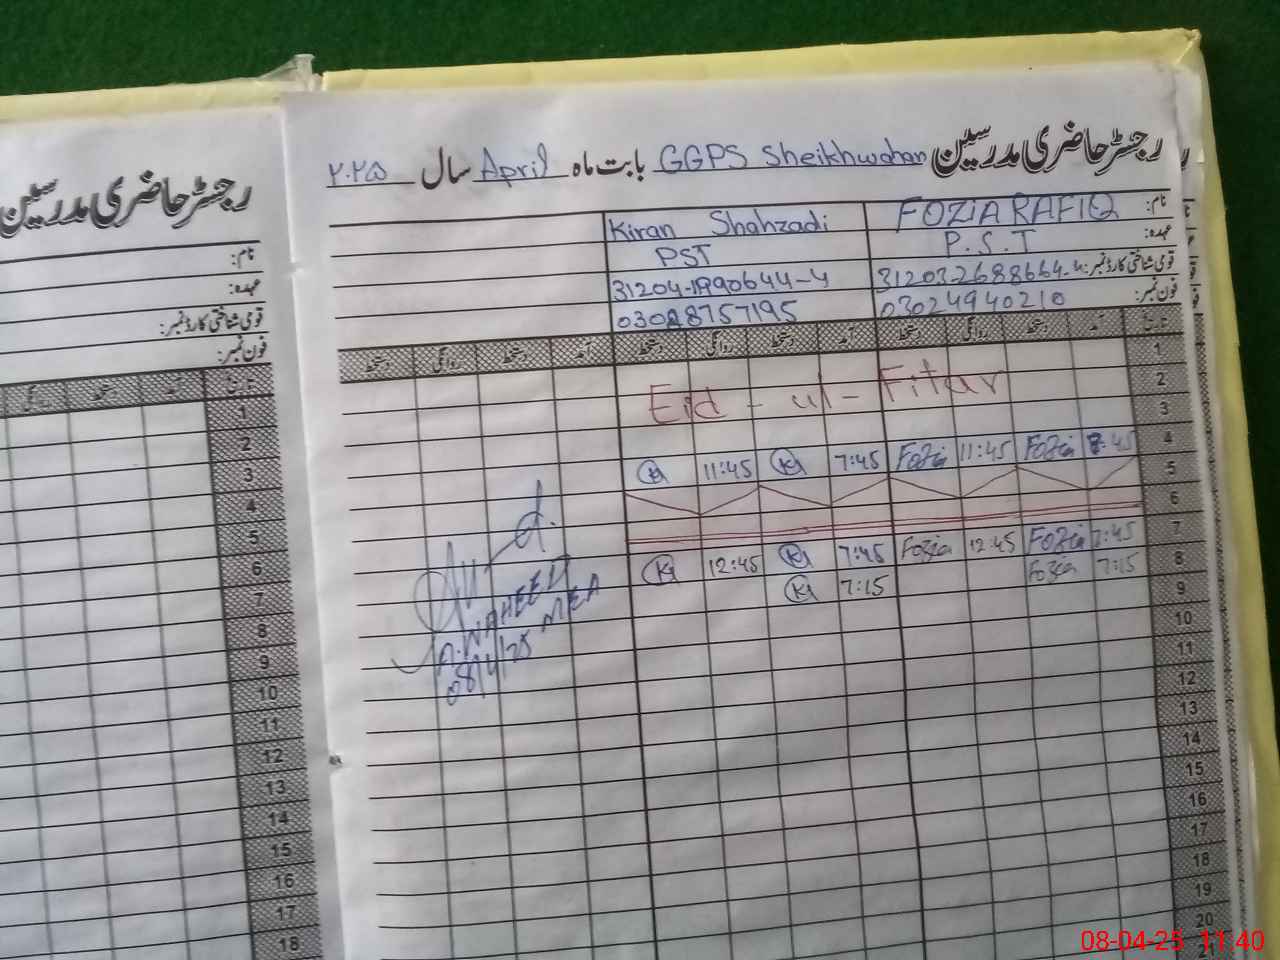 رجسٹر حاضری مدرسین GGPS Sheikhwahan بابت ماہ April سال ۲۰۲۵
نام: FOZIA RAFIQ Kiran Shahzadi
عہدہ: P.S.T PST
قومی شناختی کارڈ نمبر: 31203-2688664-4 31204-1990644-4
فون نمبر: 03024940210 03028757195
تاریخ آمد دستخط روانگی دستخط آمد دستخط روانگی دستخط آمد دستخط روانگی دستخط
1
2 Eid - ul - Fitar
3
4 7:45 Fozia 11:45 Fozia 7:45 K 11:45 K
5
6
7 7:45 Fozia 12:45 Fozia 7:45 K 12:45 K
8 7:15 Fozia 7:15 K
9
10
11
12
13
14
15
16
17
18
19
20
21
A. WAHEED
MEA
08/4/25
رجسٹر حاضری مدرسین
نام:
عہدہ:
قومی شناختی کارڈ نمبر:
فون نمبر:
تاریخ آمد دستخط روانگی
1
2
3
4
5
6
7
8
9
10
11
12
13
14
15
16
17
18
08-04-25 11:40